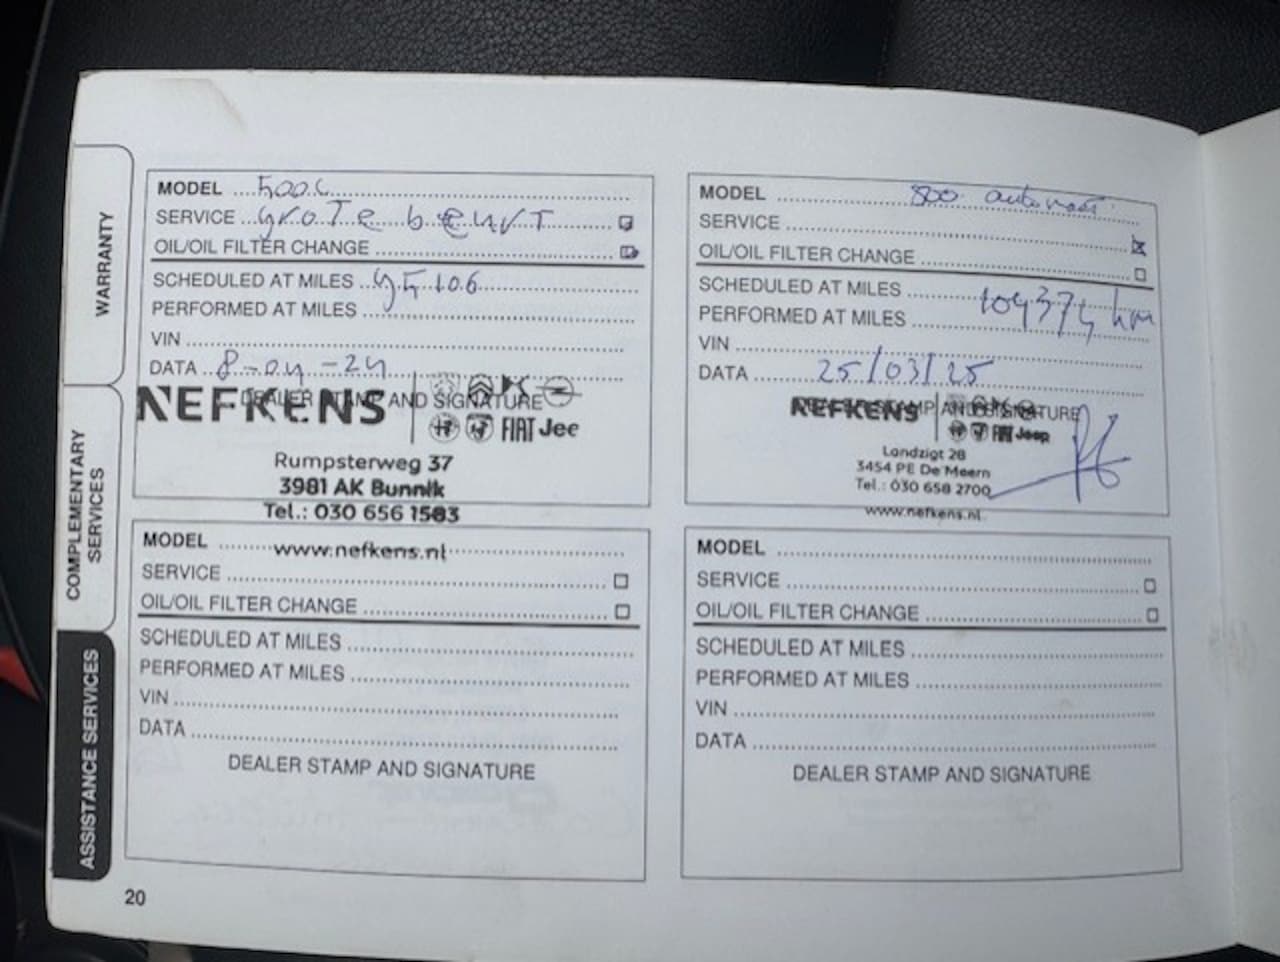 WARRANTY
COMPLEMENTARY
SERVICES
ASSISTANCE SERVICES
MODEL 500C
SERVICE groTe beurT
OIL/OIL FILTER CHANGE
SCHEDULED AT MILES 95106
PERFORMED AT MILES
VIN
DATA 8-04-24
DEALER STAMP AND SIGNATURE
NEFKENS
FIAT Jee
Rumpsterweg 37
3981 AK Bunnik
Tel.: 030 656 1583
www.nefkens.nl
MODEL 500 automaat
SERVICE
OIL/OIL FILTER CHANGE
SCHEDULED AT MILES
PERFORMED AT MILES 109374 km
VIN
DATA 25/03/25
DEALER STAMP AND SIGNATURE
NEFKENS
FIAT Jeep
Landzigt 28
3454 PE De Meern
Tel.: 030 658 2700
www.nefkens.nl
MODEL
SERVICE
OIL/OIL FILTER CHANGE
SCHEDULED AT MILES
PERFORMED AT MILES
VIN
DATA
DEALER STAMP AND SIGNATURE
MODEL
SERVICE
OIL/OIL FILTER CHANGE
SCHEDULED AT MILES
PERFORMED AT MILES
VIN
DATA
DEALER STAMP AND SIGNATURE
20